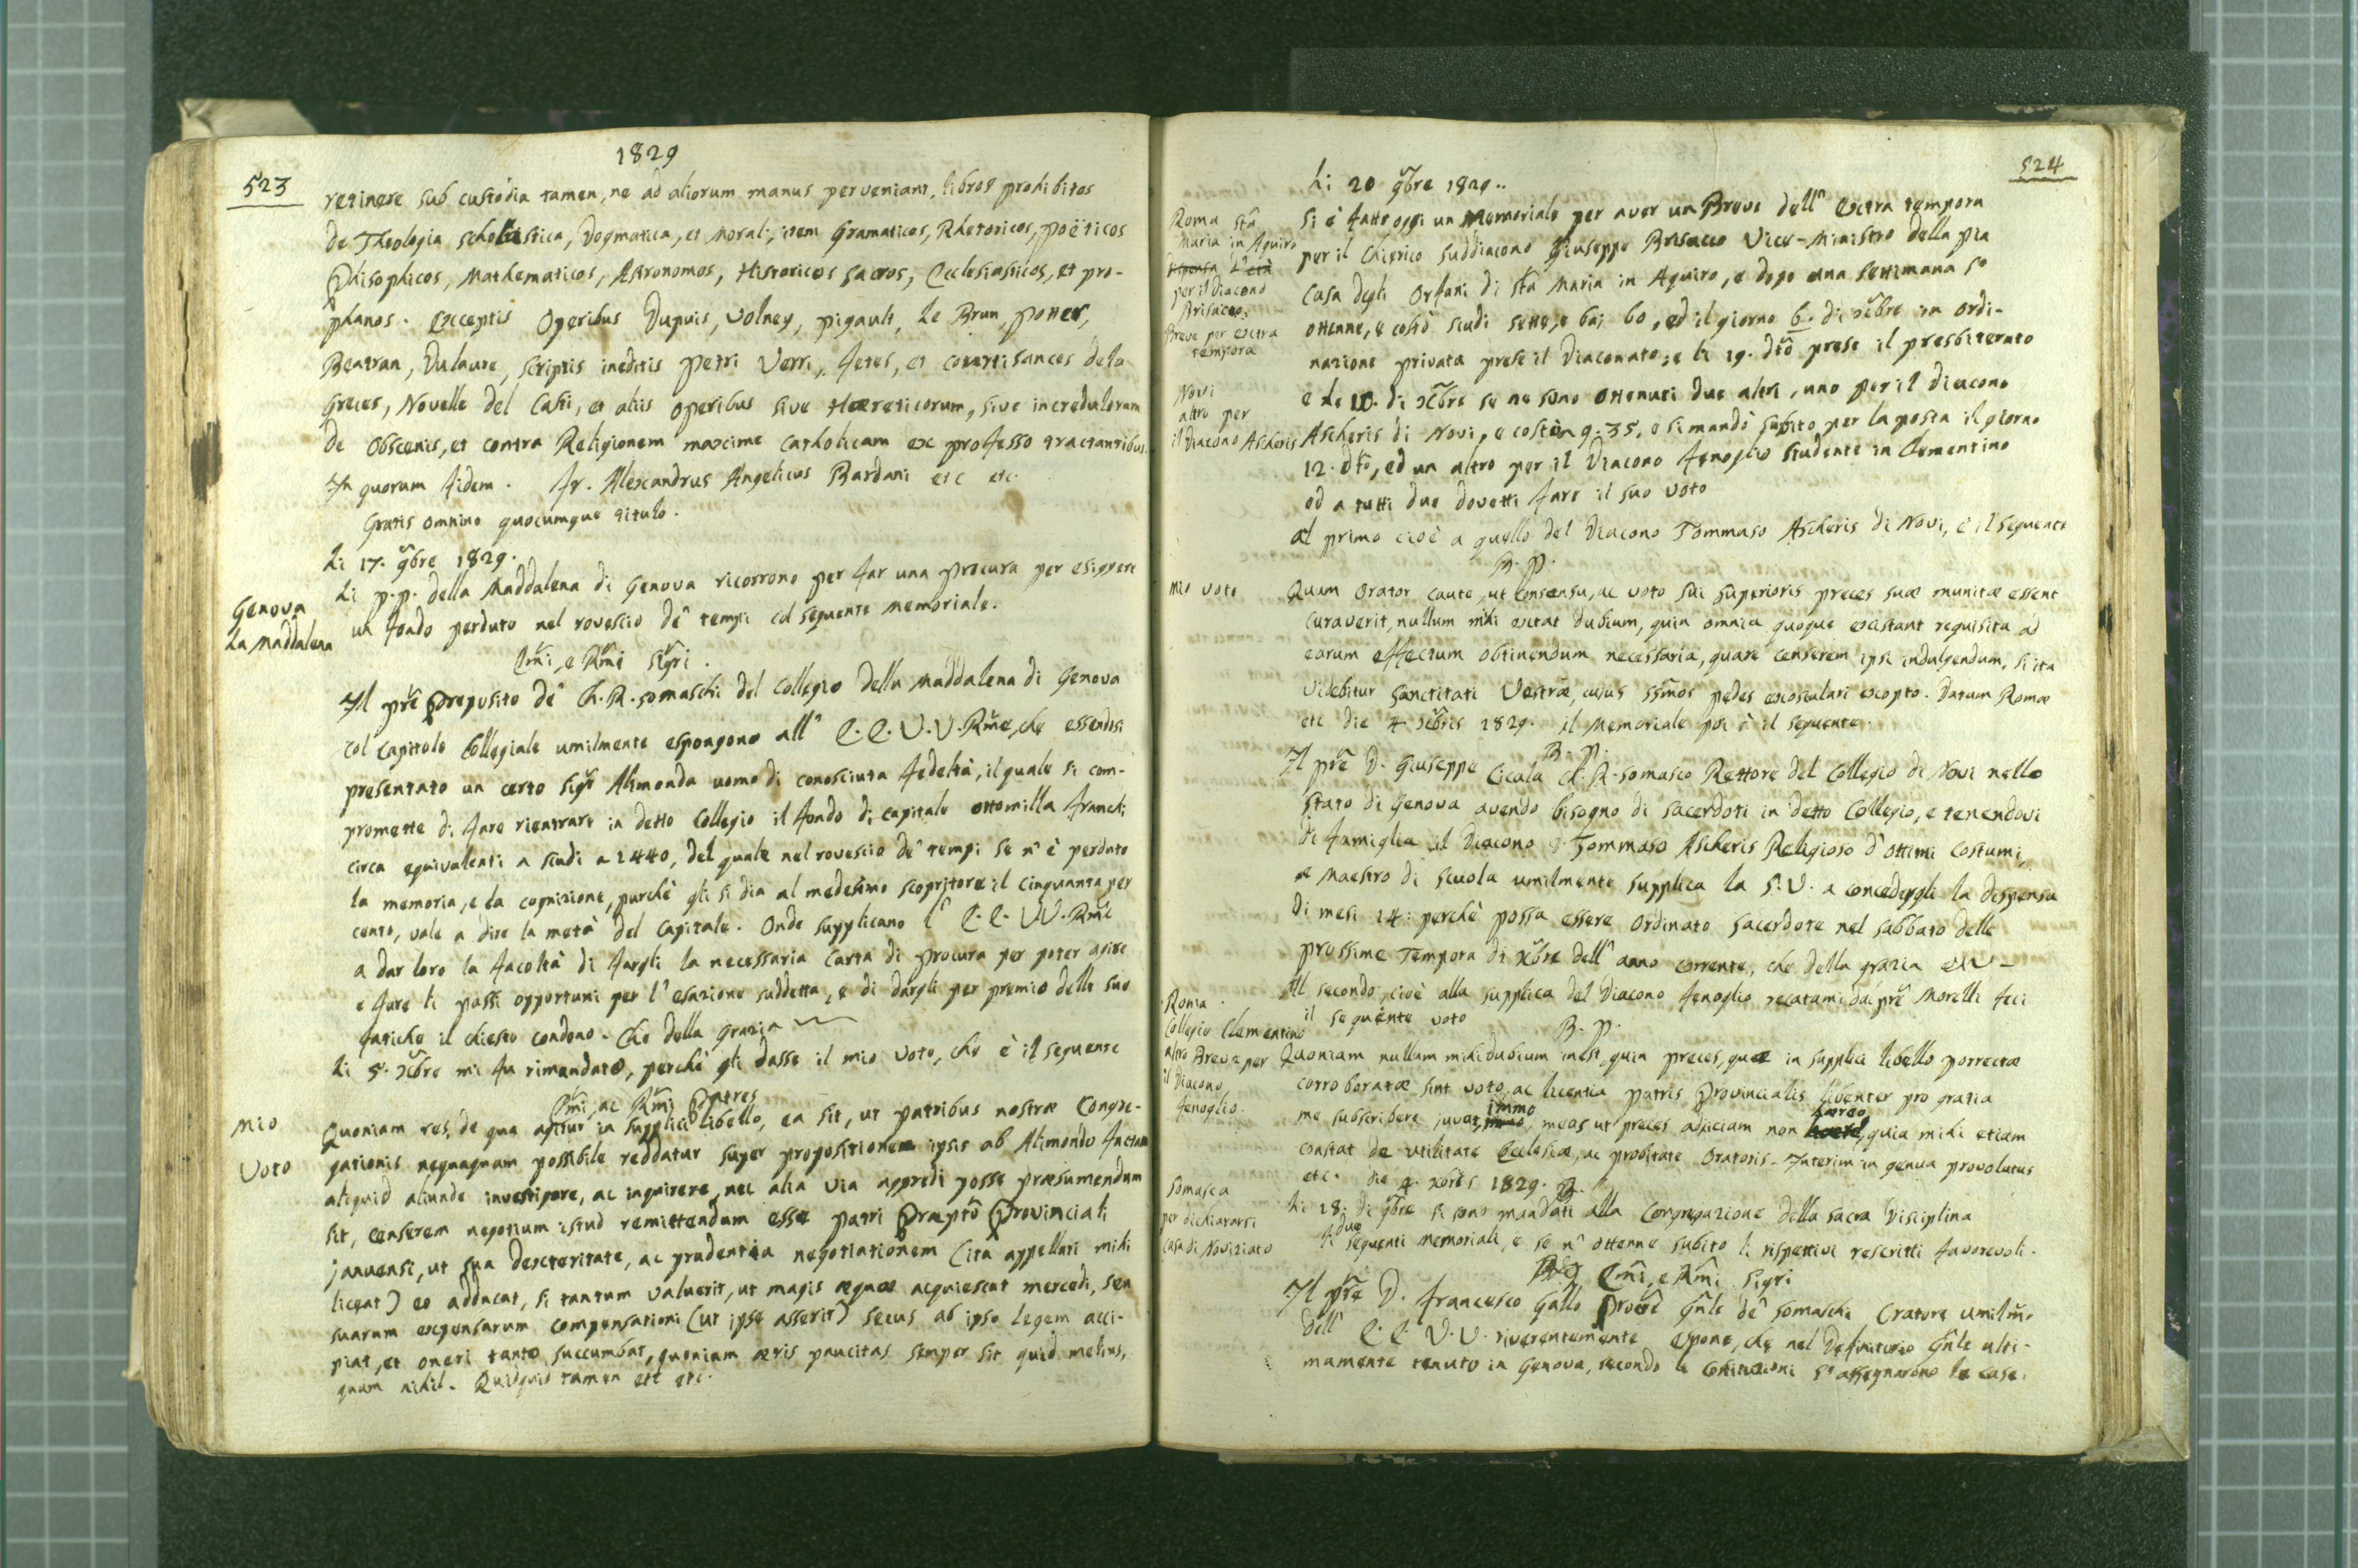 1829
523
retinere sub custodia tamen, ne ad aliorum manus perveniant, libros prohibitos
de Theologia scholastica, Dogmatica, et Moral:, item Gramaticos, Rhetoricos, poëticos
Philsophicos, Mathematicos, Astronomos, Historicos sacros, Ecclesiasticos, et pro-
phanos. exceptis Operibus Dupuis, Volney, pigault, Le Brun, potter,
Beatran, Dulaure, scriptis ineditis Petri Verri, fetes, et covertisances dela
Greces, Novelle del Casti, et aliis operibus sive Hæreticorum, sive incredulorum
de obscenis, et contra Religionem maxime catholicam ex professo tractantribus.
In quorum fidem. Fr. Alexandrus Angelicus Bardani etc etc.
Gratis omnino quocumque titulo.
Li 17. 9bre 1829.
Genova
La Maddalena
Li p.p. della Maddalena di Genova ricorrono per far una procura per esigere
un fondo perduto nel rovescio de' tempi col seguente memoriale.
Emi, e Rmi Sigri.
Il pre Preposito de' Ch. R. somaschi del Collegio della Maddalena di Genova
col Capitolo Collegiale umilmente espongono all' E. E. V. V. Rme, che essendosi
presentato un certo sigr Alimonda uomo di conosciuta fedeltà, il quale si com-
promette di fare rientrare in detto Collegio il fondo di capitale ottomilla franchi
circa equivalenti a scudi a 1440, del quale nel rovescio de' tempi se n' è perduto
la memoria, e la cognizione, purchè gli si dia al medesimo scopritore il cinquanta per
cento, vale a dire la metà del Capitale. Onde supplicano l' E. E. VV. Rme
a dar loro la facoltà di fargli la necessaria Carta di procura per poter agire
e fare li passi opportuni per l' esazione suddetta, e di dargli per premio delle sue
fatiche il chiesto condono. Che della Grazia
Li 5. Xbre mi fu rimandato, perchè gli dasse il mio voto, che è il seguente
Emi, ac Rmi Patres
Mio
Voto
Quoniam res, de qua agitur in supplici libello, ea sit, ut patribus nostræ Congre-
gationis nequaquam possibile reddatur super propositionem ipsis ab Alimondo factam
aliquid aliunde investigare, ac inquirere, nec alia via aggredi posse præsumendum
sit, censerem negotium istud remittendum esse patri Præpto Provinciali
januensi, ut sua dexteritate, ac prudentia negotiationem (ita appellari mihi
liceat) eo adducat, si tantum valuerit, ut magis æquæ acquiescat mercedi, seu
suarum expensarum compensationi (ut ipse asserit) secus ab ipso legem acci-
piat, et oneri tanto succumbat, quoniam æris paucitas semper sit quid melius,
quam nihil. Quidquid tamen etc etc.
524
Li 20 9bre 1829..
Roma Sta
Maria in Aquiro
Dispensa d'età
per il Diacono
Brisacco.
Breve per extra
tempora
Si è fatto oggi un Memoriale per aver un Breve dell' extra tempora
per il Chierico suddiacono Giuseppe Brisacco Vice-Ministro della pia
Casa degli Orfani di Sta Maria in Aquiro, e dopo una settimana so
ottenne, e costò scudi sette, e bai 60, ed il giorno 6. di Xbre in ordi-
nazione privata prese il Diaconato; e li 19. dto prese il presbiterato
Novi
altro per
il Diacono Ascheris
e li 10. di Xbre se ne sono ottenuti due altri, uno per il diacono
Ascheris di Novi, e costò 9:35, e si mandò subito per la posta il giorno
12. dto, ed un altro per il Diacono Fenoglio studente in Clementino
ed a tutti due dovetti fare il suo voto
al primo cioè a quello del Diacono Tommaso Ascheris di Novi, è il seguente
B. P.
mio voto
Quum Orator caute, ut consensu, ac voto sui superioris preces suæ munitæ essent
curaverit, nullum mihi extat dubium, quin omnia quoque existant requisita ad
earum effectum obtinendum necessaria, quare censerem ipsi indulgendum, si ita
videbitur Sanctitati Vestræ, cujus ssmos pedes exosculari exopto. Datum Romæ
etc die 4. Xbris 1829. il Memoriale poi è il seguente.
B. P.
Il pre D. Giuseppe Cicala Ch. R. somasco Rettore del Collegio di Novi nello
stato di Genova avendo bisogno di sacerdoti in detto Collegio, e tenendovi
di famiglia il Diacono D. Tommaso Ascheris Religioso d' ottimi costumi,
e Maestro di scuola umilmente supplica la S. V. a concedergli la dispensa
di mesi 14. perchè possa essere ordinato sacerdote nel sabbato delle
prossime Tempora di Xbre dell' anno corrente, che della grazia
Roma.
Collegio Clementino
altro Breve per
il Diacono
Fenoglio.
Al secondo, cioè alla supplica del Diacono Fenoglio recatami dal pre Morelli feci
il seguente voto
B. P.
Quoniam nullum mihi dubium inest, quin preces, quæ in supplici libello porrectæ
corroboratæ sint voto, ac licentia patris Provincialis libenter pro gratia
me subscribere juvat, immo, meas ut preces adjiciam non hæreo, quia mihi etiam
constat de utilitate Ecclesiæ, ac probitate Oratoris. Interim in genua provolutus
etc. die 4. Xbris 1829.
Somasca
per dichiararsi
casa di Noviziato
Li 28. di 9bre si sono mandati alla Congregazione della sacra Disciplina
li due seguenti memoriali, e se n' ottenne subito li rispettivi rescritti favorevoli.
Emi, e Rmi Sigri
Il pre D. Francesco Gallo Procre Gnle de' Somaschi Oratore umilmo
dell' E. E. V. V. riverentemente espone, che nel Definitorio Gnle ulti-
mamente tenuto in Genova, secondo le costituzioni s' assegnarono le case.